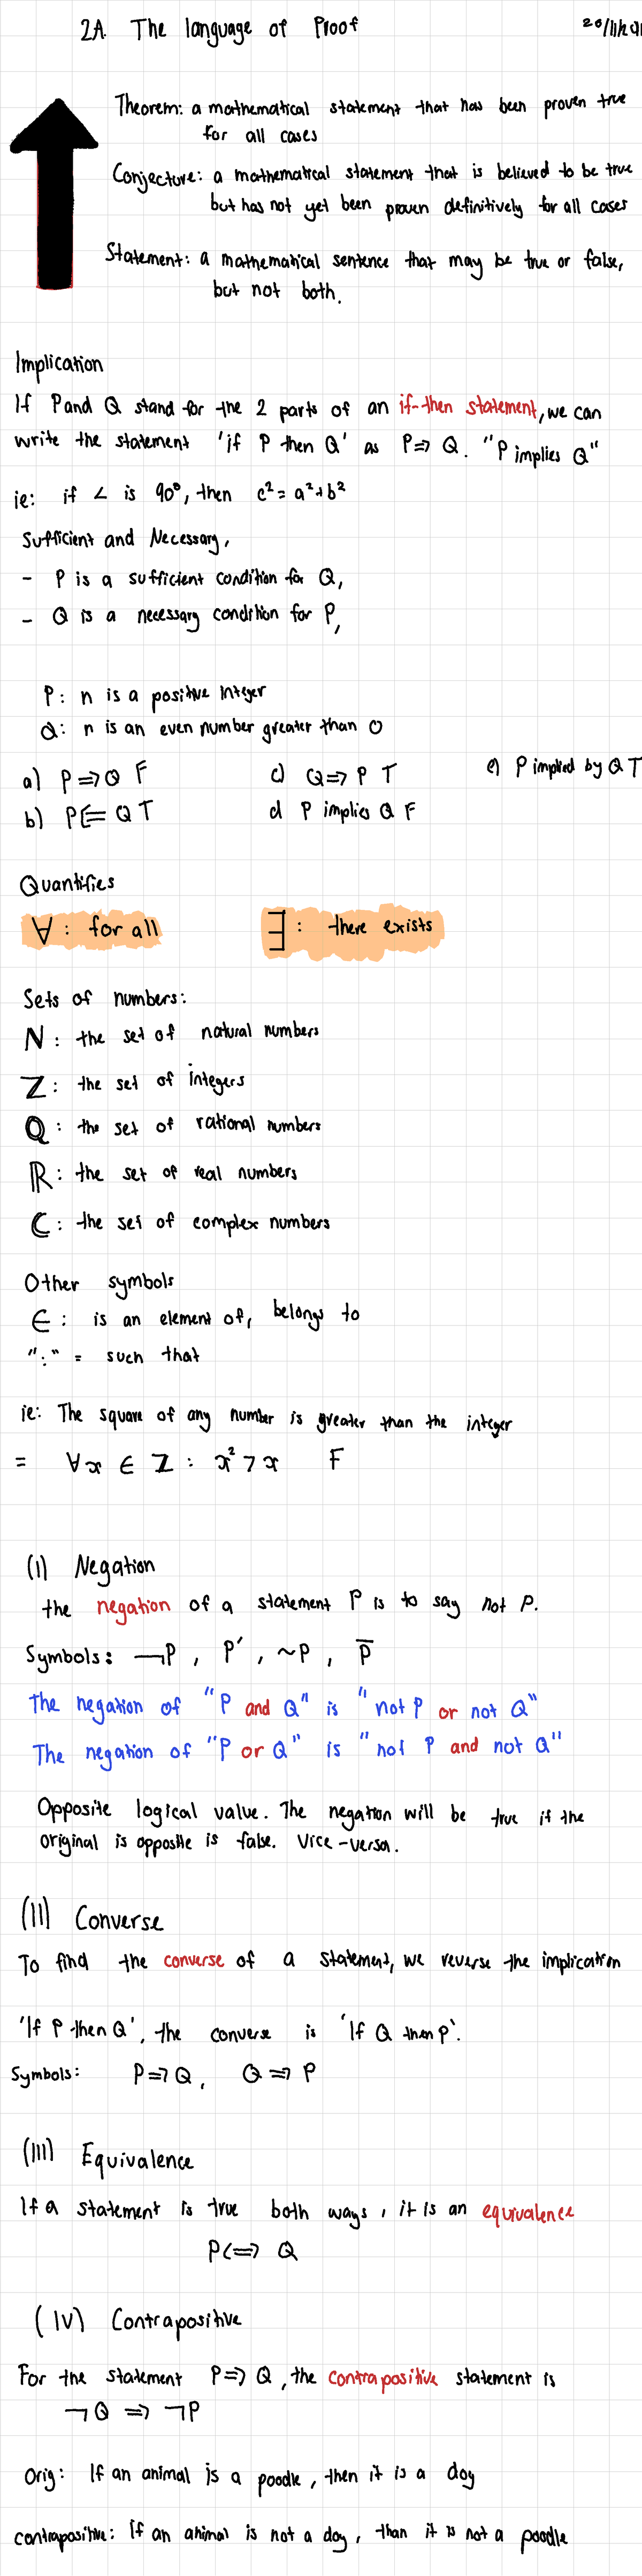 2A. The language of Proof
Theorem: a mathematical statement that has been proven true
for all cases
Conjecture: a mathematical statement that is believed to be true
but has not yet been proven definitively for all cases
Statement: a mathematical sentence that may be true or false,
but not both.
Implication
If P and Q stand for the 2 parts of an if-then statement, we can
write the statement 'if P then Q' as P⇒Q. "P implies Q"
ie: if ∠ is 90°, then c²=a²+b²
Sufficient and Necessary,
- P is a sufficient condition for Q,
- Q is a necessary condition for P,
P: n is a positive integer
Q: n is an even number greater than 0
a) P⇒Q F c) Q⇒P T e) P implied by Q T
b) P⇐Q T d P implies Q F
Quantifies
∀: for all ∃: there exists
Sets of numbers:
N: the set of natural numbers
Z: the set of integers
Q: the set of rational numbers
R: the set of real numbers
C: the set of complex numbers
Other symbols
∈: is an element of, belongs to
":" = such that
ie: The square of any number is greater than the integer
= ∀x ∈ Z : x²>x F
(I) Negation
the negation of a statement P is to say not P.
Symbols: ¬P, P', ~P, P̅
The negation of "P and Q" is "not P or not Q"
The negation of "P or Q" is "not P and not Q"
Opposite logical value. The negation will be true if the
original is opposite is false. Vice-versa.
(II) Converse
To find the converse of a statement, we reverse the implication
'If P then Q', the converse is 'If Q then P'.
Symbols: P⇒Q, Q⇒P
(III) Equivalence
If a statement is true both ways, it is an equivalence
P⇔Q
(IV) Contrapositive
For the statement P⇒Q, the contrapositive statement is
¬Q ⇒ ¬P
Orig: If an animal is a poodle, then it is a dog
contrapositive: If an animal is not a dog, than it is not a poodle